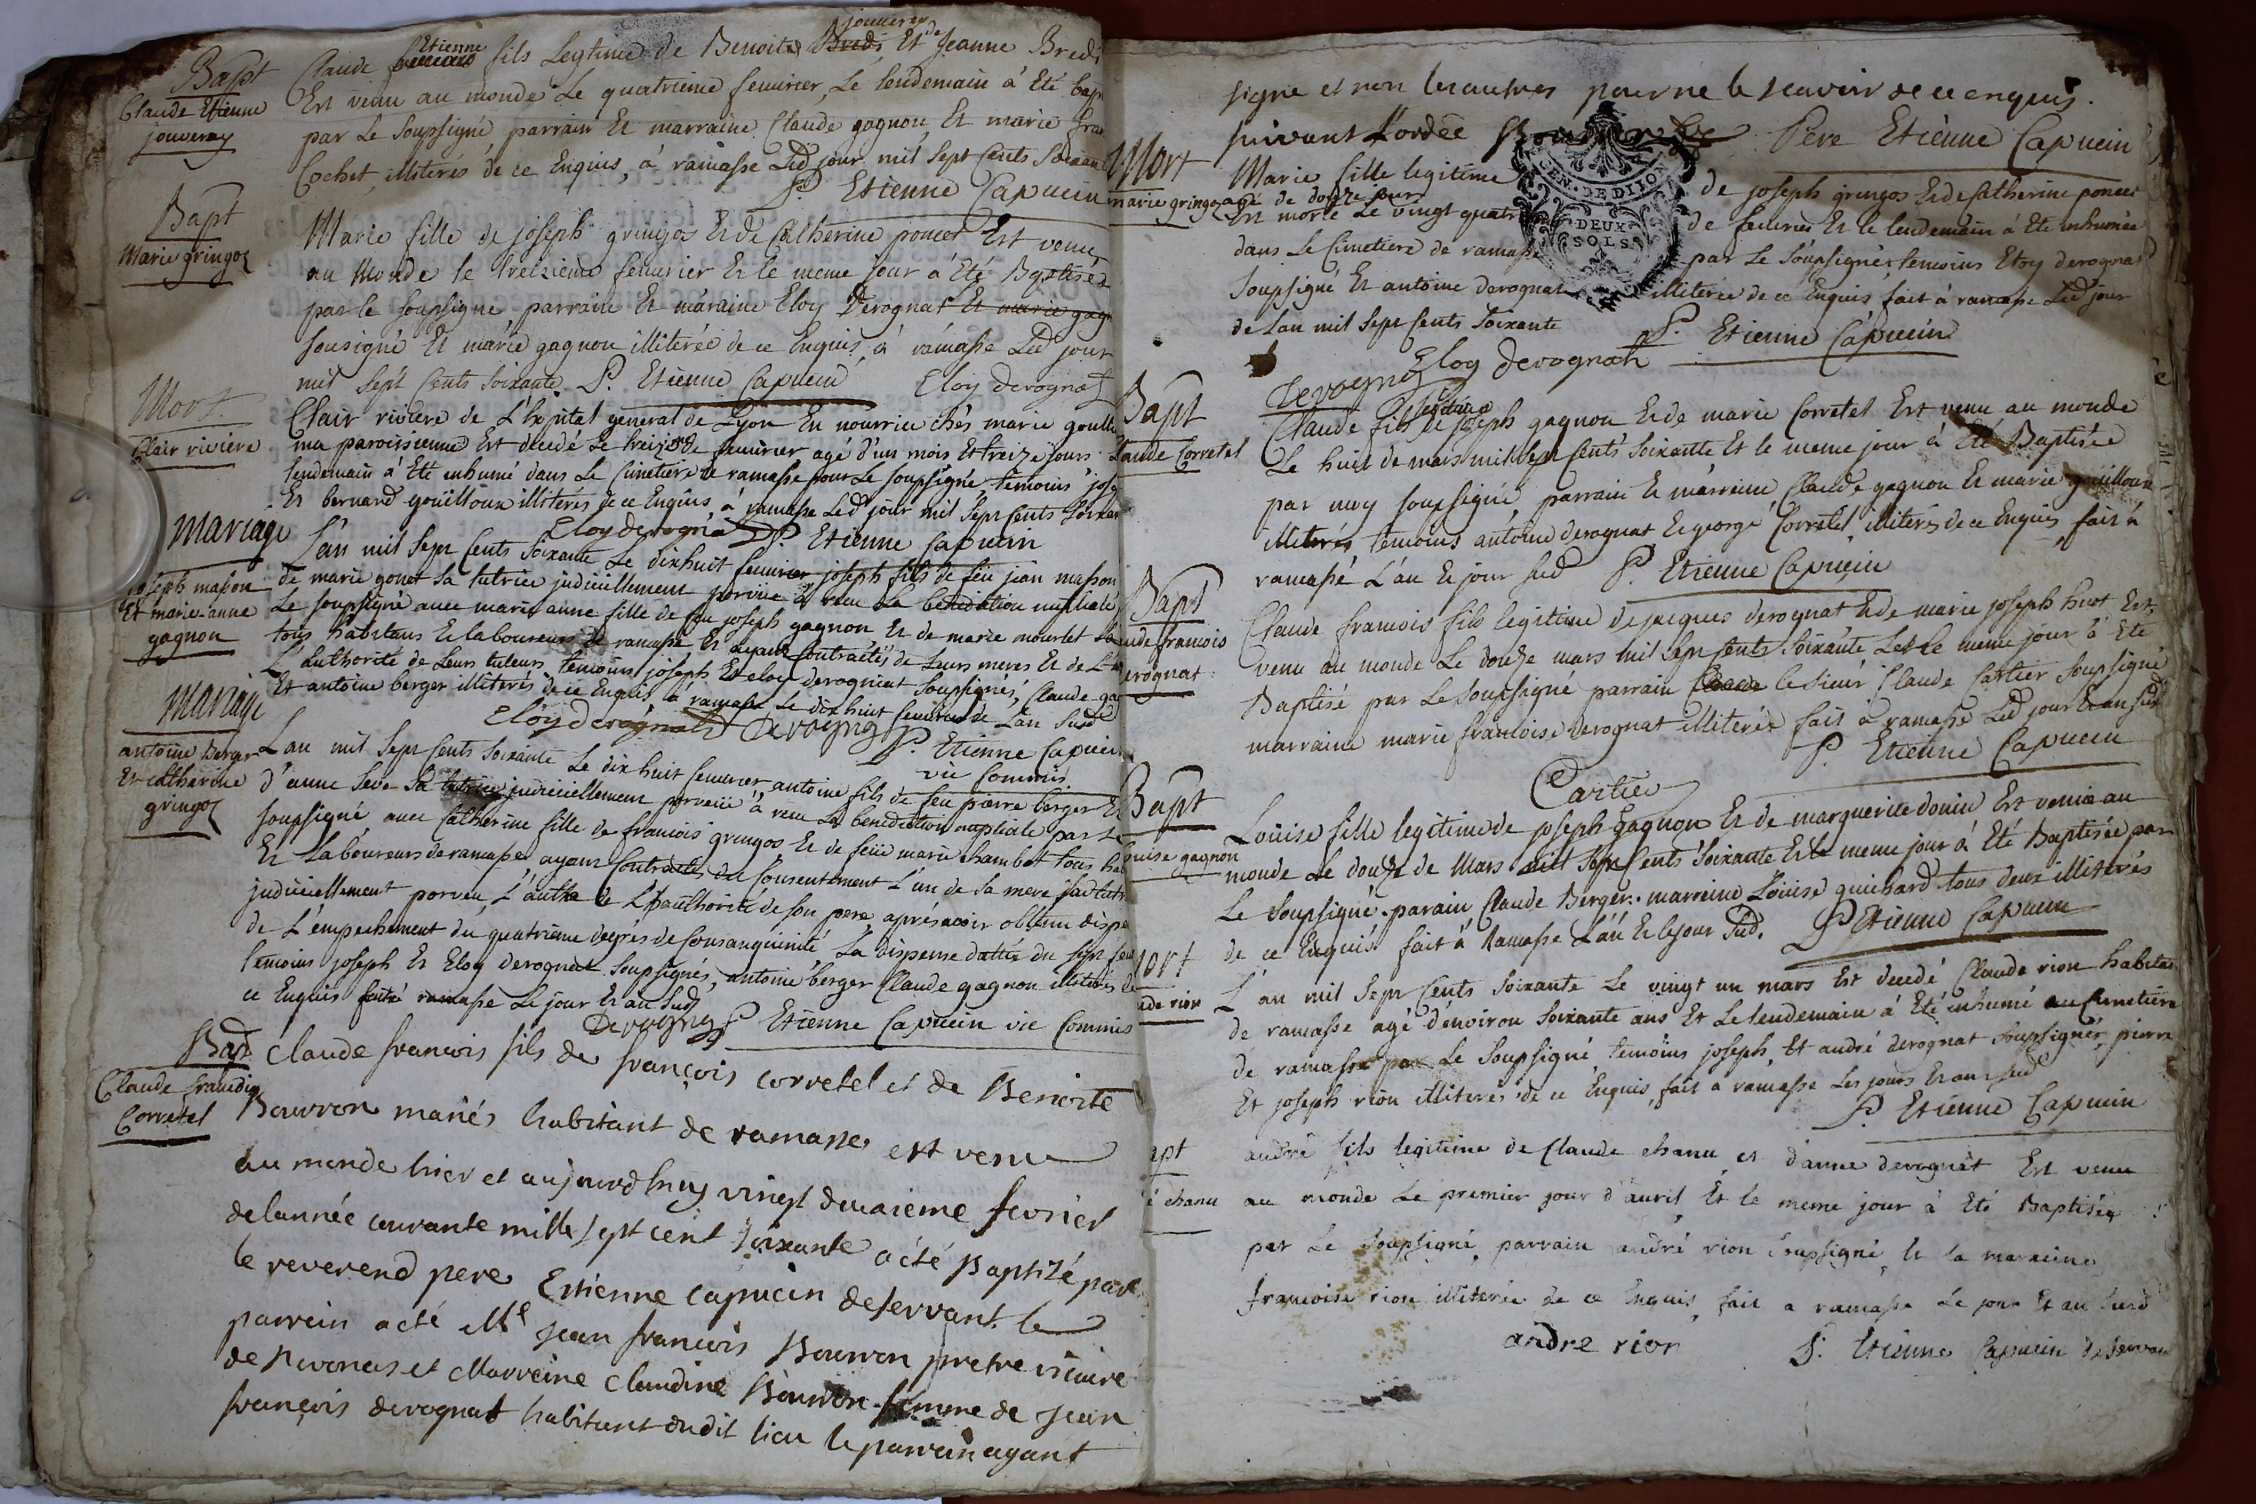 Bapt
Claude Etienne
jouveray
Claude Etienne fils Legtime de Benoite jouveray Et de Jeanne Bredi
Est venu au monde Le quatrieme feuvrier, Le lendemain à Eté bapt
par Le Soupsigné parrain Et marraine Claude gagnon Et marie fran
Cochet, illiterés de ce Enquis, à ramasse Led jour mil sept Cents Soixan
P. Etienne Capucin
Bapt
Marie gringoz
Marie fille de joseph gringos Et de Catherine poncet Est venue
au Monde le treizieme feuvrier Et le meme jour à Eté Baptisée
par le soupsigné parrain Et maraine Eloy Derognat Et marie gag
sousigné Et marie gagnon illiterée de ce Enquis, à ramasse Led jour
mil sept Cents Soixante P. Etienne Capucin Eloy derognat
Mort
Clair riviere
Clair riviere de L'hopital general de Lyon En nourrice chés marie gouille
ma paroissienne Est decedé Le treize de feuvrier agé d'un mois Et treize jours
lendemain à Eté inhumé dans Le Cimetiere de ramasse pour Le soupsigné temoins jose
Et bernard gouilloux illiterés de ce Enquis, à ramasse Led jour mil Sept Cents Soixan
Eloy derognat P. Etienne Capucin
Mariage
joseph masson
Et marie-anne
gagnon
L'an mil Sept Cents Soixante Le dixhuit feuvrier joseph fils de feu jean masson
de marie gonet Sa tutrice judiciellement porvüe à recu La benediction nuptiale
Le soupsigné avec marie anne fille de feu joseph gagnon Et de marie mourlet Sa
tous habitans Et laboureurs de ramasse Et ayant Contractés de Leurs meres Et de L'au
L'Authorité de Leurs tuteurs, temoins joseph Et eloy derognat Soupsignés, Claude ga
Et antoine berger illiterés de ce Enquis à ramasse Le dix huit feuvrier de L'an Sud
Eloy derognat Derognat P. Etienne Capucin
vic Commis
Mariage
antoine Berger
Et catherine
gringoz
L'an mil Sept Cents Soixante Le dix huit feuvrier antoine fils de feu pierre berger Et
d'anne Seve Sa tutrice judiciellement porveüe à recu La benediction nuptiale par Le
soupsigné avec Catherine fille de francois gringos Et de feüe marie chambet tous hab
Et Laboureurs de ramasse ayant Contractés du Consentement L'un de Sa mere Sa tutr
judiciellement porveu, L'autre de L'hauthorité de son pere apres avoir obtenu dispe
de L'empechement du quatrieme degrés de Consanguinité La dispense dattée du sept feu
temoins joseph Et Eloy derognat Soupsignés, antoine berger Claude gagnon illiterés de
ce Enquis fait à ramasse Le jour Et an Sud
Derognat P. Etienne Capucin vic Commis
Bapt
Claude francois
Corretel
Claude francois fils de françois corretel et de Benoite
Bourron mariés habitant de ramasse est venu
au monde hier et aujourdhuy vingt deuxieme fevrier
de lannée courante mille sept cent soixante a été Baptizé par
le reverend pere Estienne capucin deservant le
parrein a eté Me jean françois Bourron pretre vicaire
de nivonas et Marreine Claudine Bourron femme de jean
françois derognat habitant dudit lieu le parrein ayant
signé et non les autres pour ne le scavoir de ce enquis.
suivant L'ordce Père Etiènne Capucin
Mort
marie gringoz
Marie fille legitime de joseph gringos Et de Catherine poncet
agé de douze jours
Est morte Le vingt quatre de feuvrier Et le lendemain à Eté inhumée
dans Le Cimetiere de ramasse par Le Soupsigné, temoins Eloy derognat
Soupsigné Et antoine derognat illiterée de ce Enquis fait à ramasse Led jour
de Lan mil Sept Cents Soixante P. Etienne Capucin
GEN. DE DIJON
DEUX
SOLS
Derognat Eloy derognat
Bapt
Claude Corretel
Claude fils legitime de joseph gagnon Et de marie Corretel Est venu au monde
Le huit de mars mil sept Cents Soixante Et le meme jour à Eté Baptisée
par moy soupsigné, parrain Et marreine Claude gagnon Et marie gouilloux
illiterés, temoins antoine derognat Et george Corretel illiterés de ce Enquis, fait à
ramassé L'an Et jour Sud P. Etienne Capucin
Bapt
Claude francois
derognat
Claude francois fils legitime de jacques derognat Et de marie joseph huot Est
venu au monde Le douze mars mil sept Cents Soixante Et Le meme jour à Eté
Baptisé par Le Soupsigné parrain Claude le sieur Claude Cartier Soupsigné
marraine marie francoise derognat illiterée fait à ramasse Led jour Et an Sud
P. Etienne Capucin
Cartier
Bapt
Louise gagnon
Loüise fille legitime de joseph gagnon Et de marguerite douin Est venüe au
monde Le douze de Mars mil Sept Cents Soixante Et le meme jour à Eté Baptisée par
Le Soupsigné. parain Claude Berger. marreine Loüise guichard tous deux illiterés
de ce Enquis fait à Ramasse L'an Et le jour Sud. P Etienne Capucin
Mort
Claude rion
L'an mil Sept Cents Soixante Le vingt un mars Est decedé Claude rion habitan
de ramasse agé d'environ Soixante ans Et Le lendemain à Eté inhumé au Cimetiere
de ramasse par Le Soupsigné, temoins joseph, Et andré derognat Soupsignés, pierre
Et joseph rion illiterés de ce Enquis, fait à ramasse Les jours Et an Sud
P. Etienne Capucin
apt
é chanu
andré fils legitime de Claude chanu et d'anne derognat Est venu
au monde Le premier jour d'avril Et le meme jour à Eté Baptisée
par Le Soupsigné, parrain andré rion soupsigné, Et la maraine
francoise rion illiterée de ce Enquis, fait a ramasse Le jour Et an Susd
andre rion P. Etienne Capucin deservan